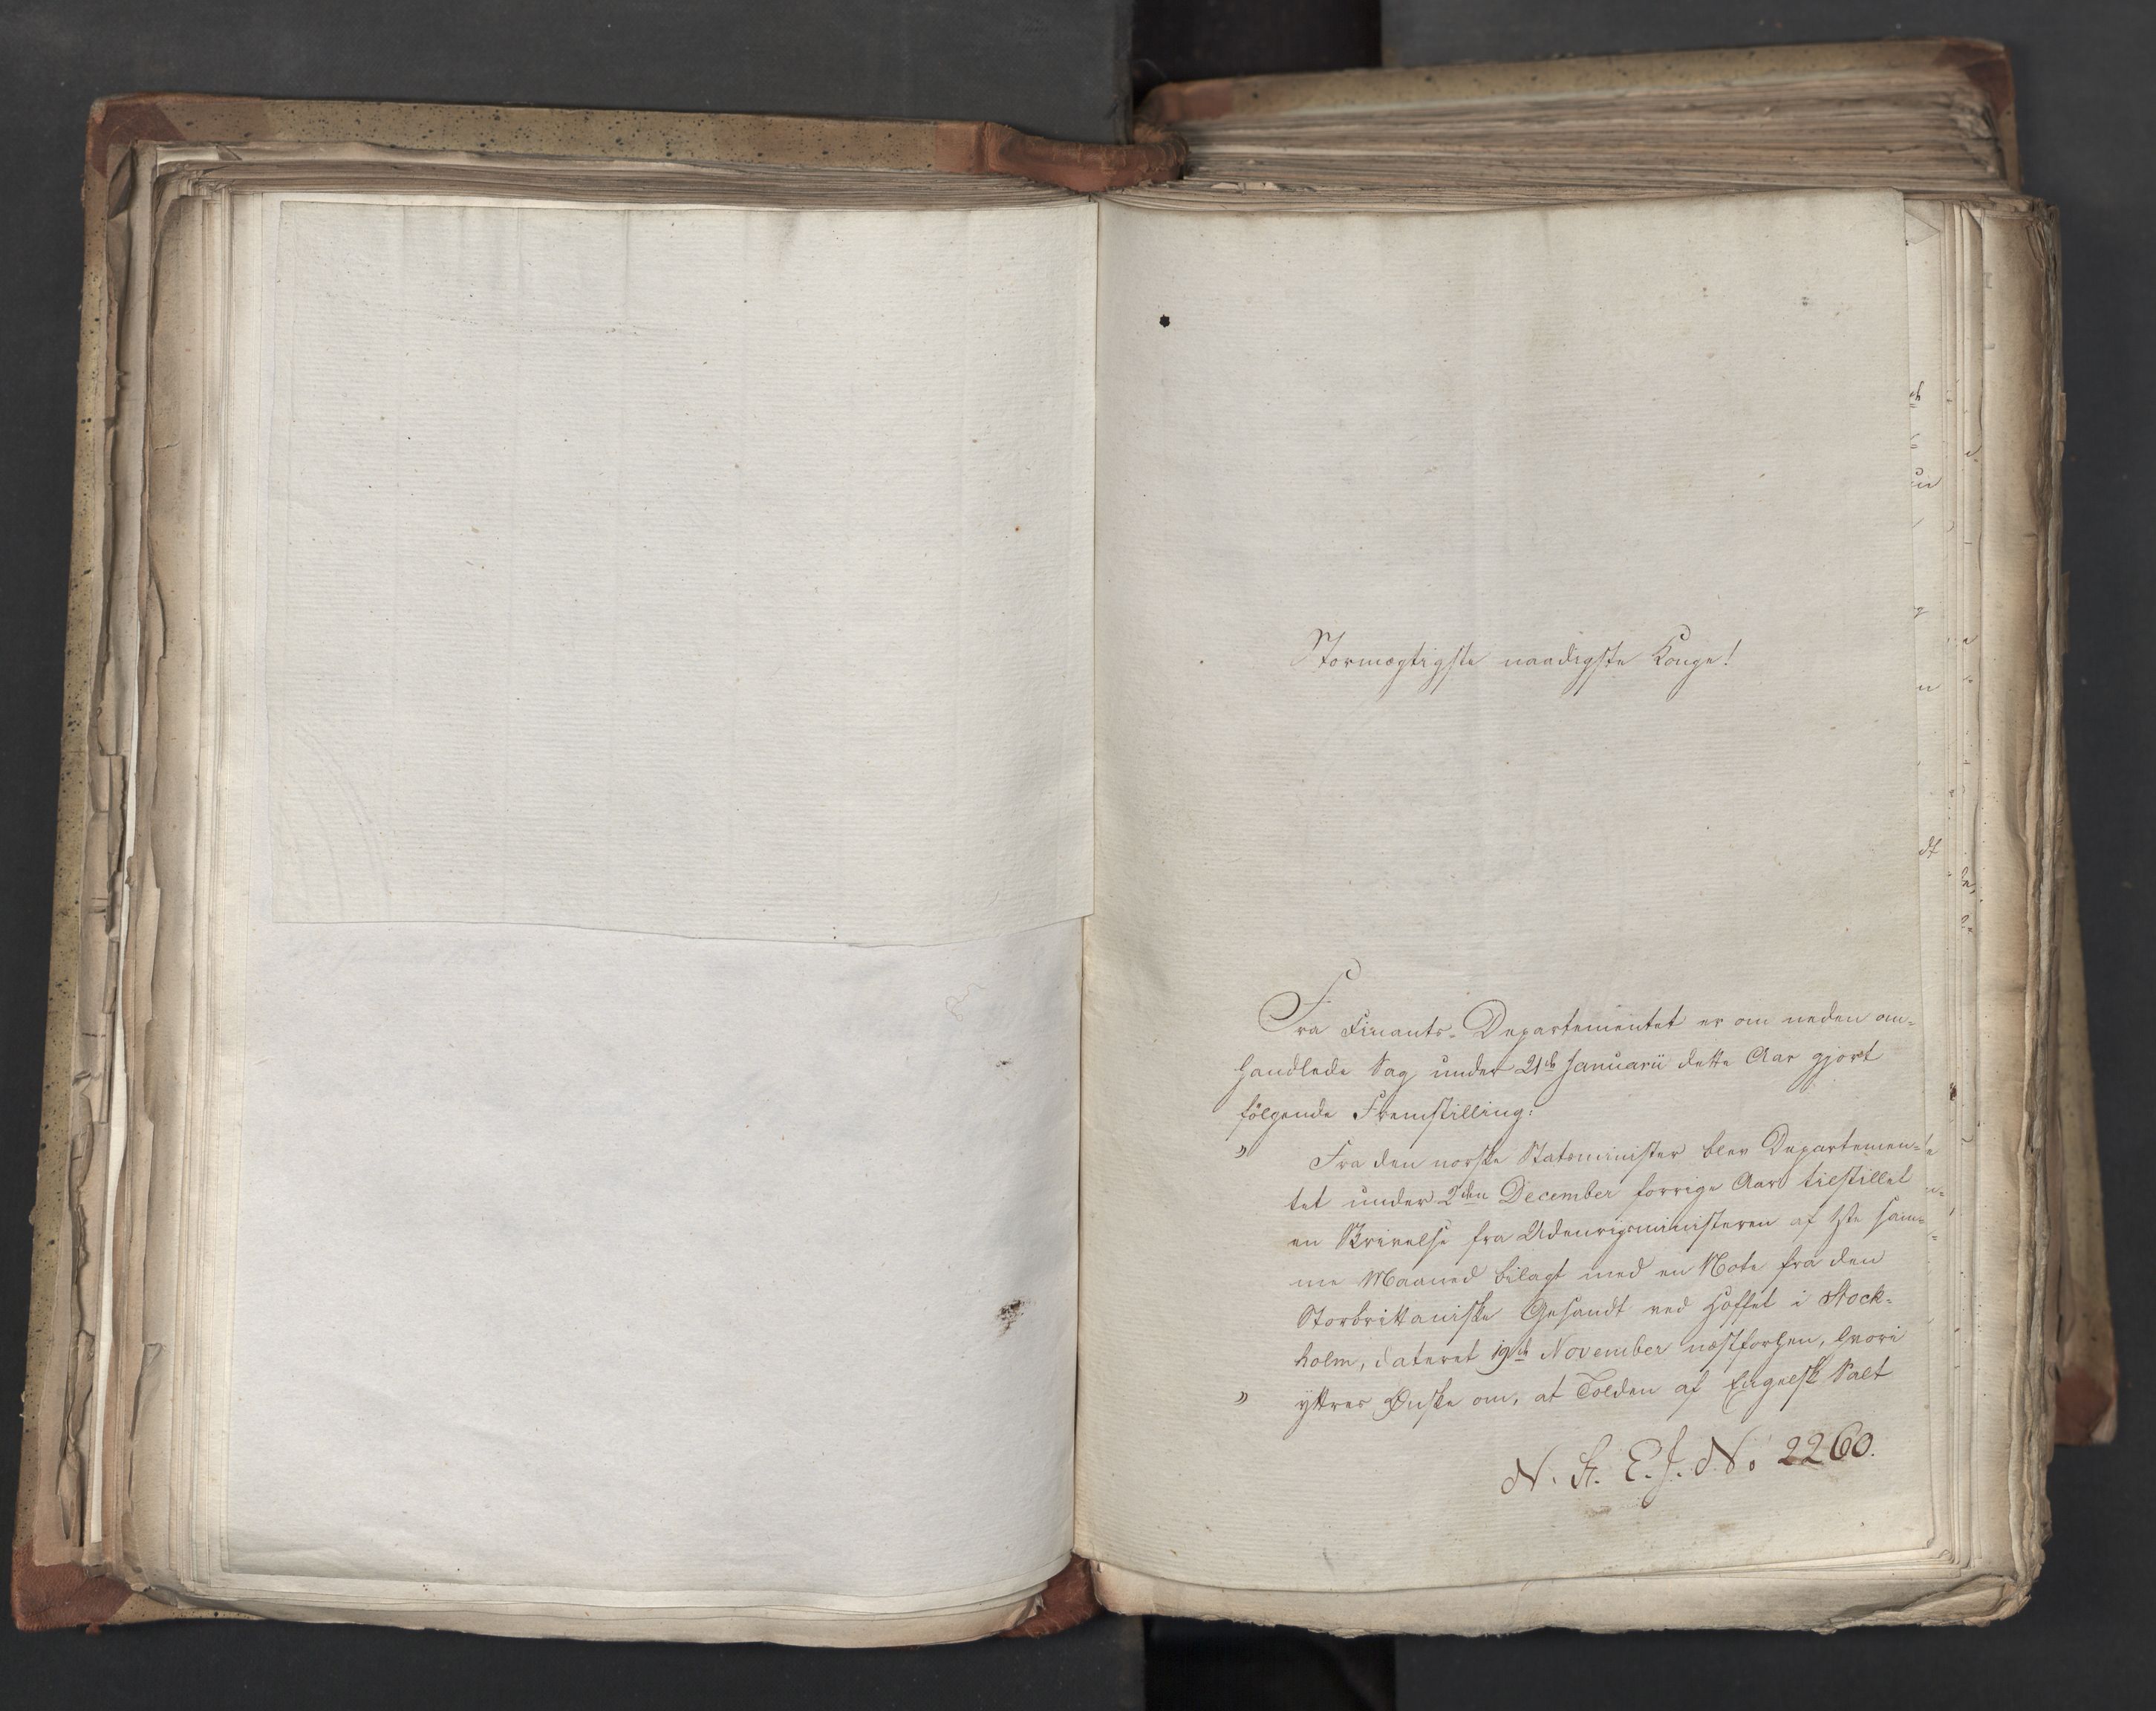 Stormægtigste naadigste Konge!
Fra Finants-Departementet er om neden om-
handlede Sag under 21de Januarii dette Aar gjort
følgende Fremstilling:
" Fra den norske Statsminister blev Departemen-
tet under 2den December forrige Aar tilstillet
en Skrivelse fra Udenrigsministeren af 1ste sam-
me Maaned bilagt med en Note fra den
Storbrittaniske Gesandt ved Hoffet i Stock-
holm, dateret 19de November næstforhen, hvori
" yttres Ønske om, at Tolden af Engelsk Salt
N. St. E. J. No 2260.